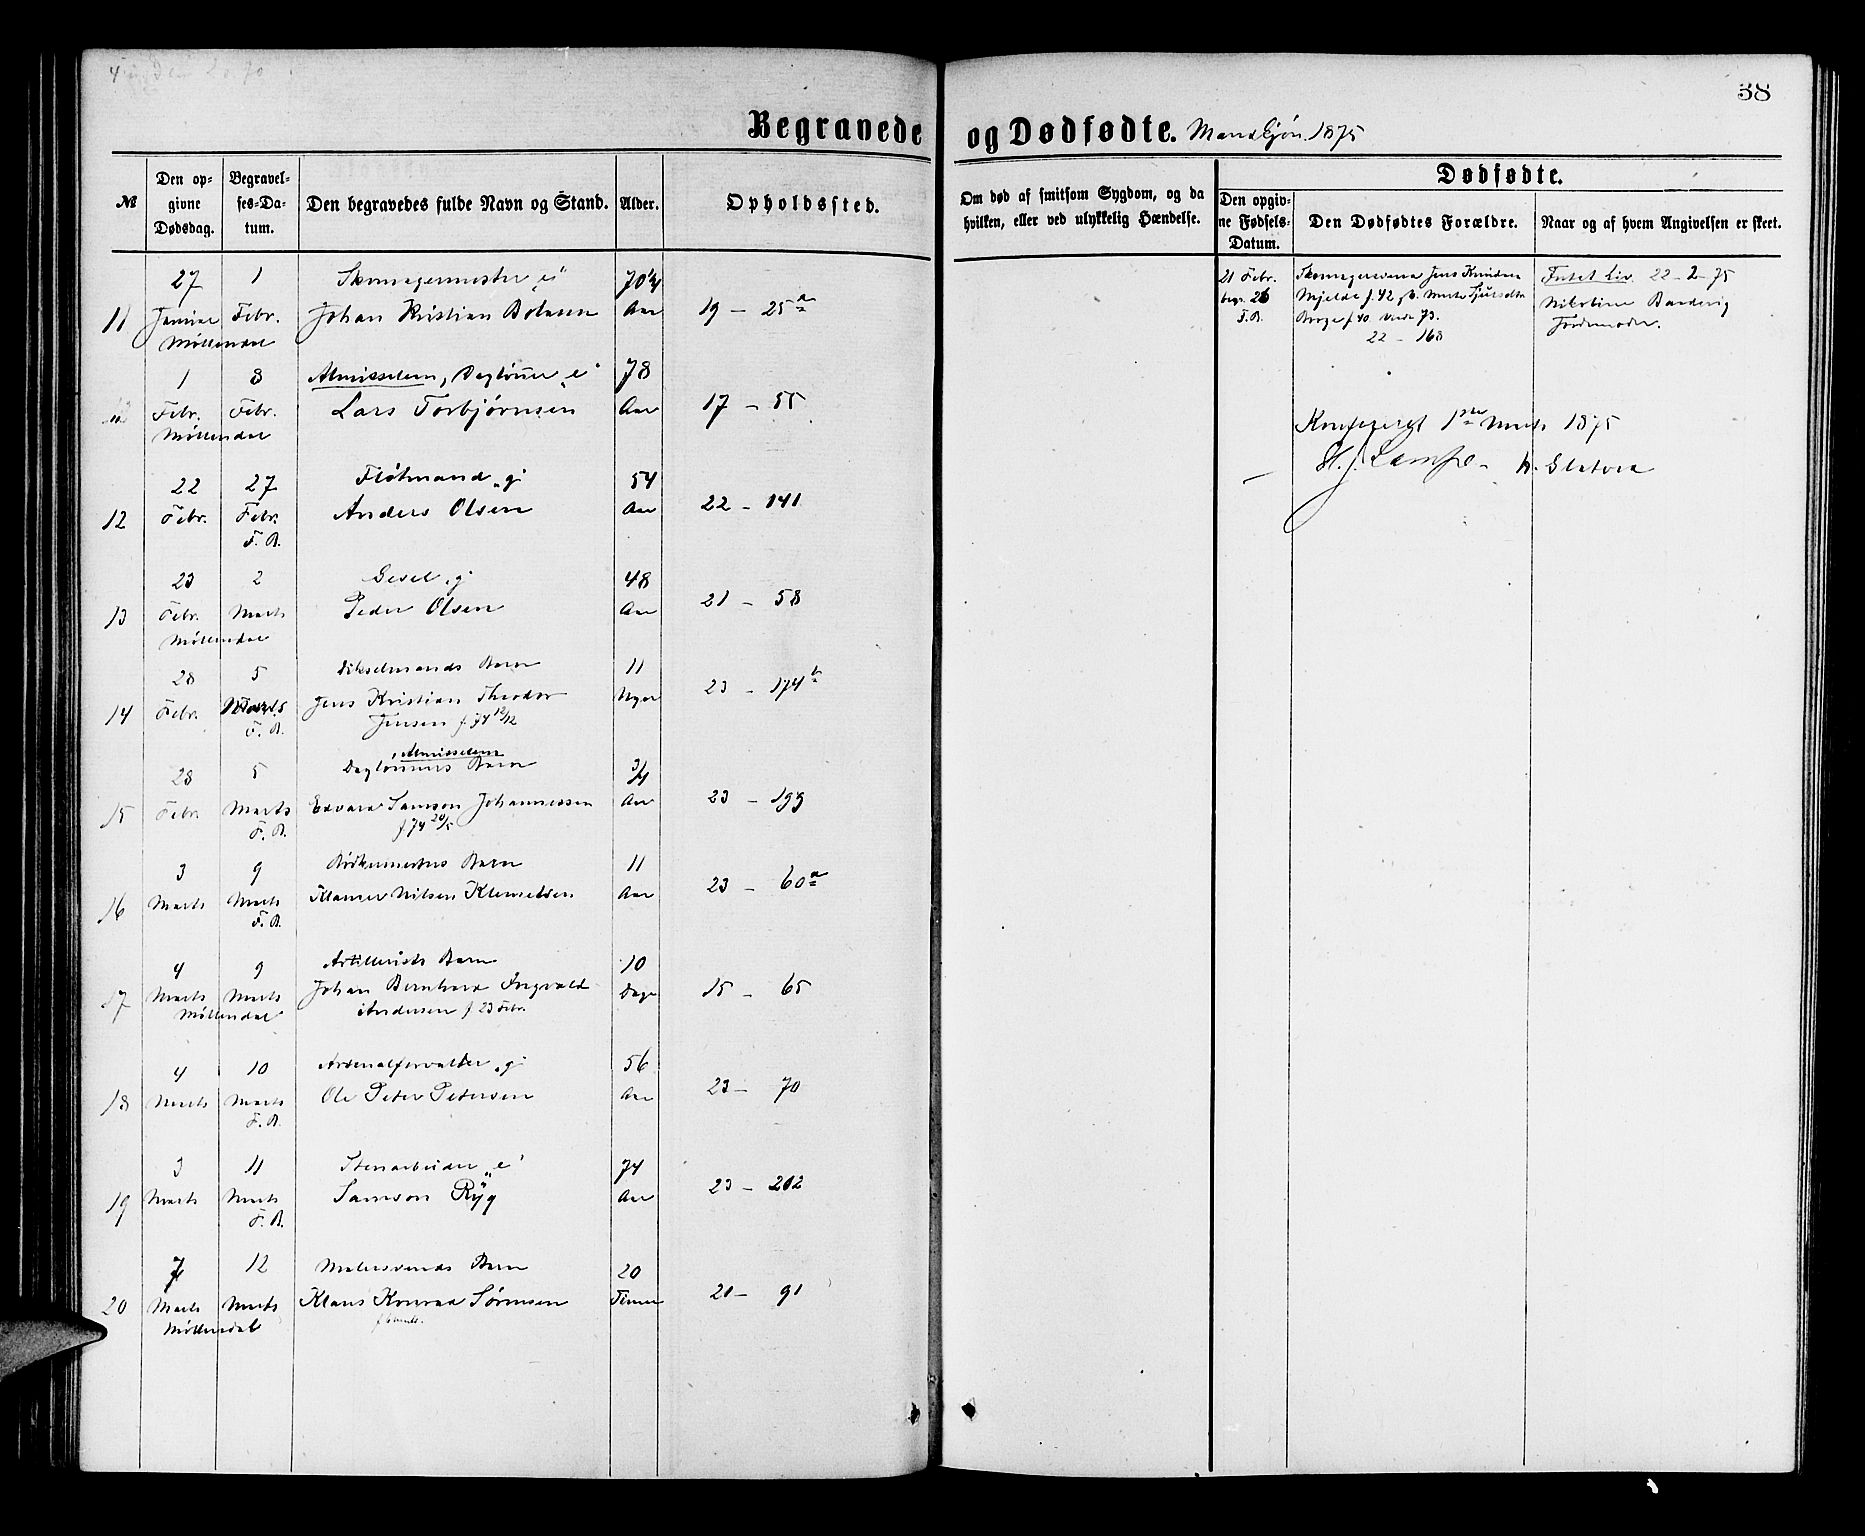 38
Begravede og Dødfødte. Mandkjøn. 1875
№
Den opgivne Dødsdag.
Begravelses-Datum.
Den begravedes fulde Navn og Stand.
Alder.
Opholdssted.
Om død af smitsom Sygdom, og da hvilken, eller ved ulykkelig Hændelse.
Dødfødte.
Den opgivne Fødsels-Datum.
Den Dødfødtes Forældre.
Naar og af hvem Angivelsen er skeet.
27 1 Skomagermester „e" 70 1/4
11 Januar Febr. Johan Kristian Aar 19 – 25 a
Møllendal
1 8 Almisselem, Daglønner „e" 78
Febr. Febr. Lars Torbjørnsen Aar 17 – 55
Møllendal
22 27 Fløtmand „g" 54
12 Febr. Febr. Anders Olsen Aar 22 – 141
F. B.
23 2 Gesel „g" 48
13 Febr. Marts Peder Olsen Aar 21 – 58
Møllendal
28 5 Barn 11
14 Febr. Marts Jens Kristian Theodor Uger 23 – 174 b
F. B. Jensen f. 74 12/12
Almisselem
28 5 Daglønners Barn 3/4
15 Febr. Marts Edvard Samson Johannessen Aar 23 – 193
F. B. f 74 20/5
3 9 Bødkermesters Barn 11
16 Marts Marts Nilsen Klemetsen Aar 23 – 60 a
F. B.
4 9 Artillerists Barn 10
17 Marts Marts Johan Bernhard Ingvald Dage 15 – 65
Møllendal Andersen f 23 Febr.
4 10 Arsenalforvalter „g" 56
18 Marts Marts Ole Peter Petersen Aar 23 – 70
F. B.
3 11 Stenarbeider „e" 74
19 Marts Marts Samson Ryg Aar 23 – 202
F. B.
7 12 Malersvends Barn 20
20 Marts Marts Klaus Konrad Sørensen Timer 21 – 91
Møllendal
21 Febr. Skomagersvend Jens Knudsen 22–2–75
begr. 26 Mjelde f. 42 Nikoline
F. B. f 40 73. Jordemoder.
22 – 168
Konfereret 1ste Marts 1875
H. J. Lampe